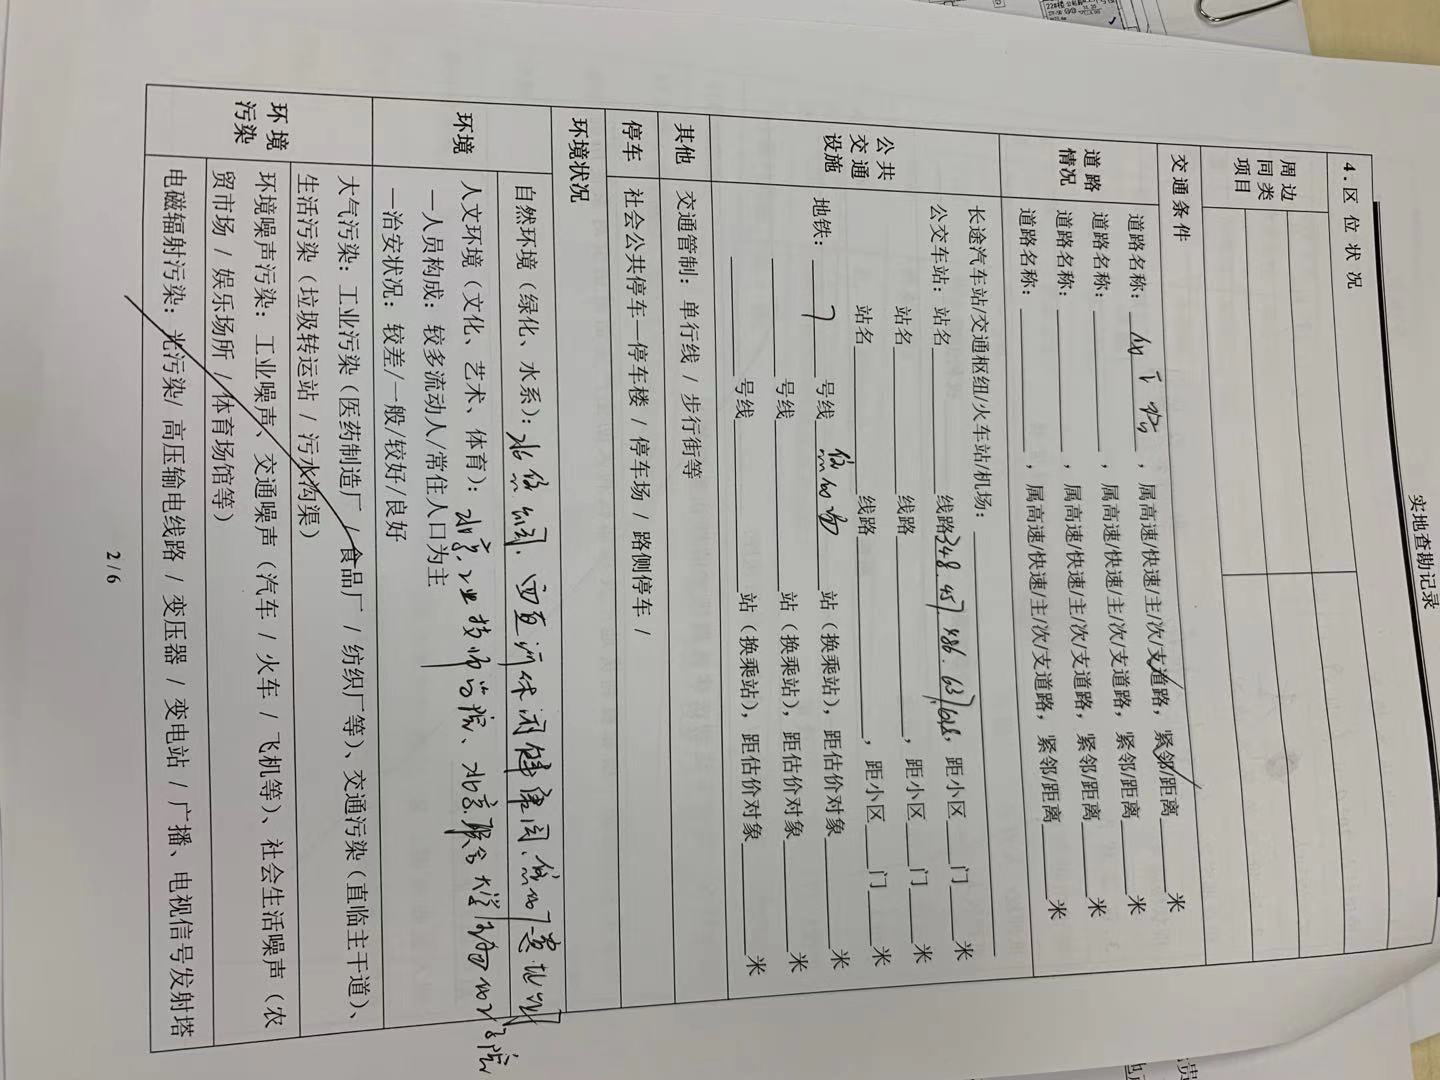 实地查勘记录
4.区位状况
周边同类项目
交通条件
道路情况
道路名称：，属高速/快速/主/次/支道路，紧邻/距离米
道路名称：，属高速/快速/主/次/支道路，紧邻/距离米
道路名称：，属高速/快速/主/次/支道路，紧邻/距离米
道路名称：，属高速/快速/主/次/支道路，紧邻/距离米
公共交通设施
长途汽车站/交通枢纽/火车站/机场：
公交车站：站名线路348.457.，距小区门米
站名线路，距小区门米
站名线路，距小区门米
地铁：7号线站（换乘站），距估价对象米
号线站（换乘站），距估价对象米
号线站（换乘站），距估价对象米
其他
交通管制：单行线/步行街等
停车
社会公共停车—停车楼/停车场/路侧停车/
环境状况
环境
自然环境（绿化、水系）：休闲健康园
人文环境（文化、艺术、体育）：北京工业技师学院、北京联合大学
—人员构成：较多流动人/常住人口为主
—治安状况：较差/一般/较好/良好
环境污染
大气污染：工业污染（医药制造厂/食品厂/纺织厂等）、交通污染（直临主干道）、
生活污染（垃圾转运站/污水沟渠）
环境噪声污染：工业噪声、交通噪声（汽车/火车/飞机等）、社会生活噪声（农
贸市场/娱乐场所/体育场馆等）
电磁辐射污染：光污染/高压输电线路/变压器/变电站/广播、电视信号发射塔
2/6